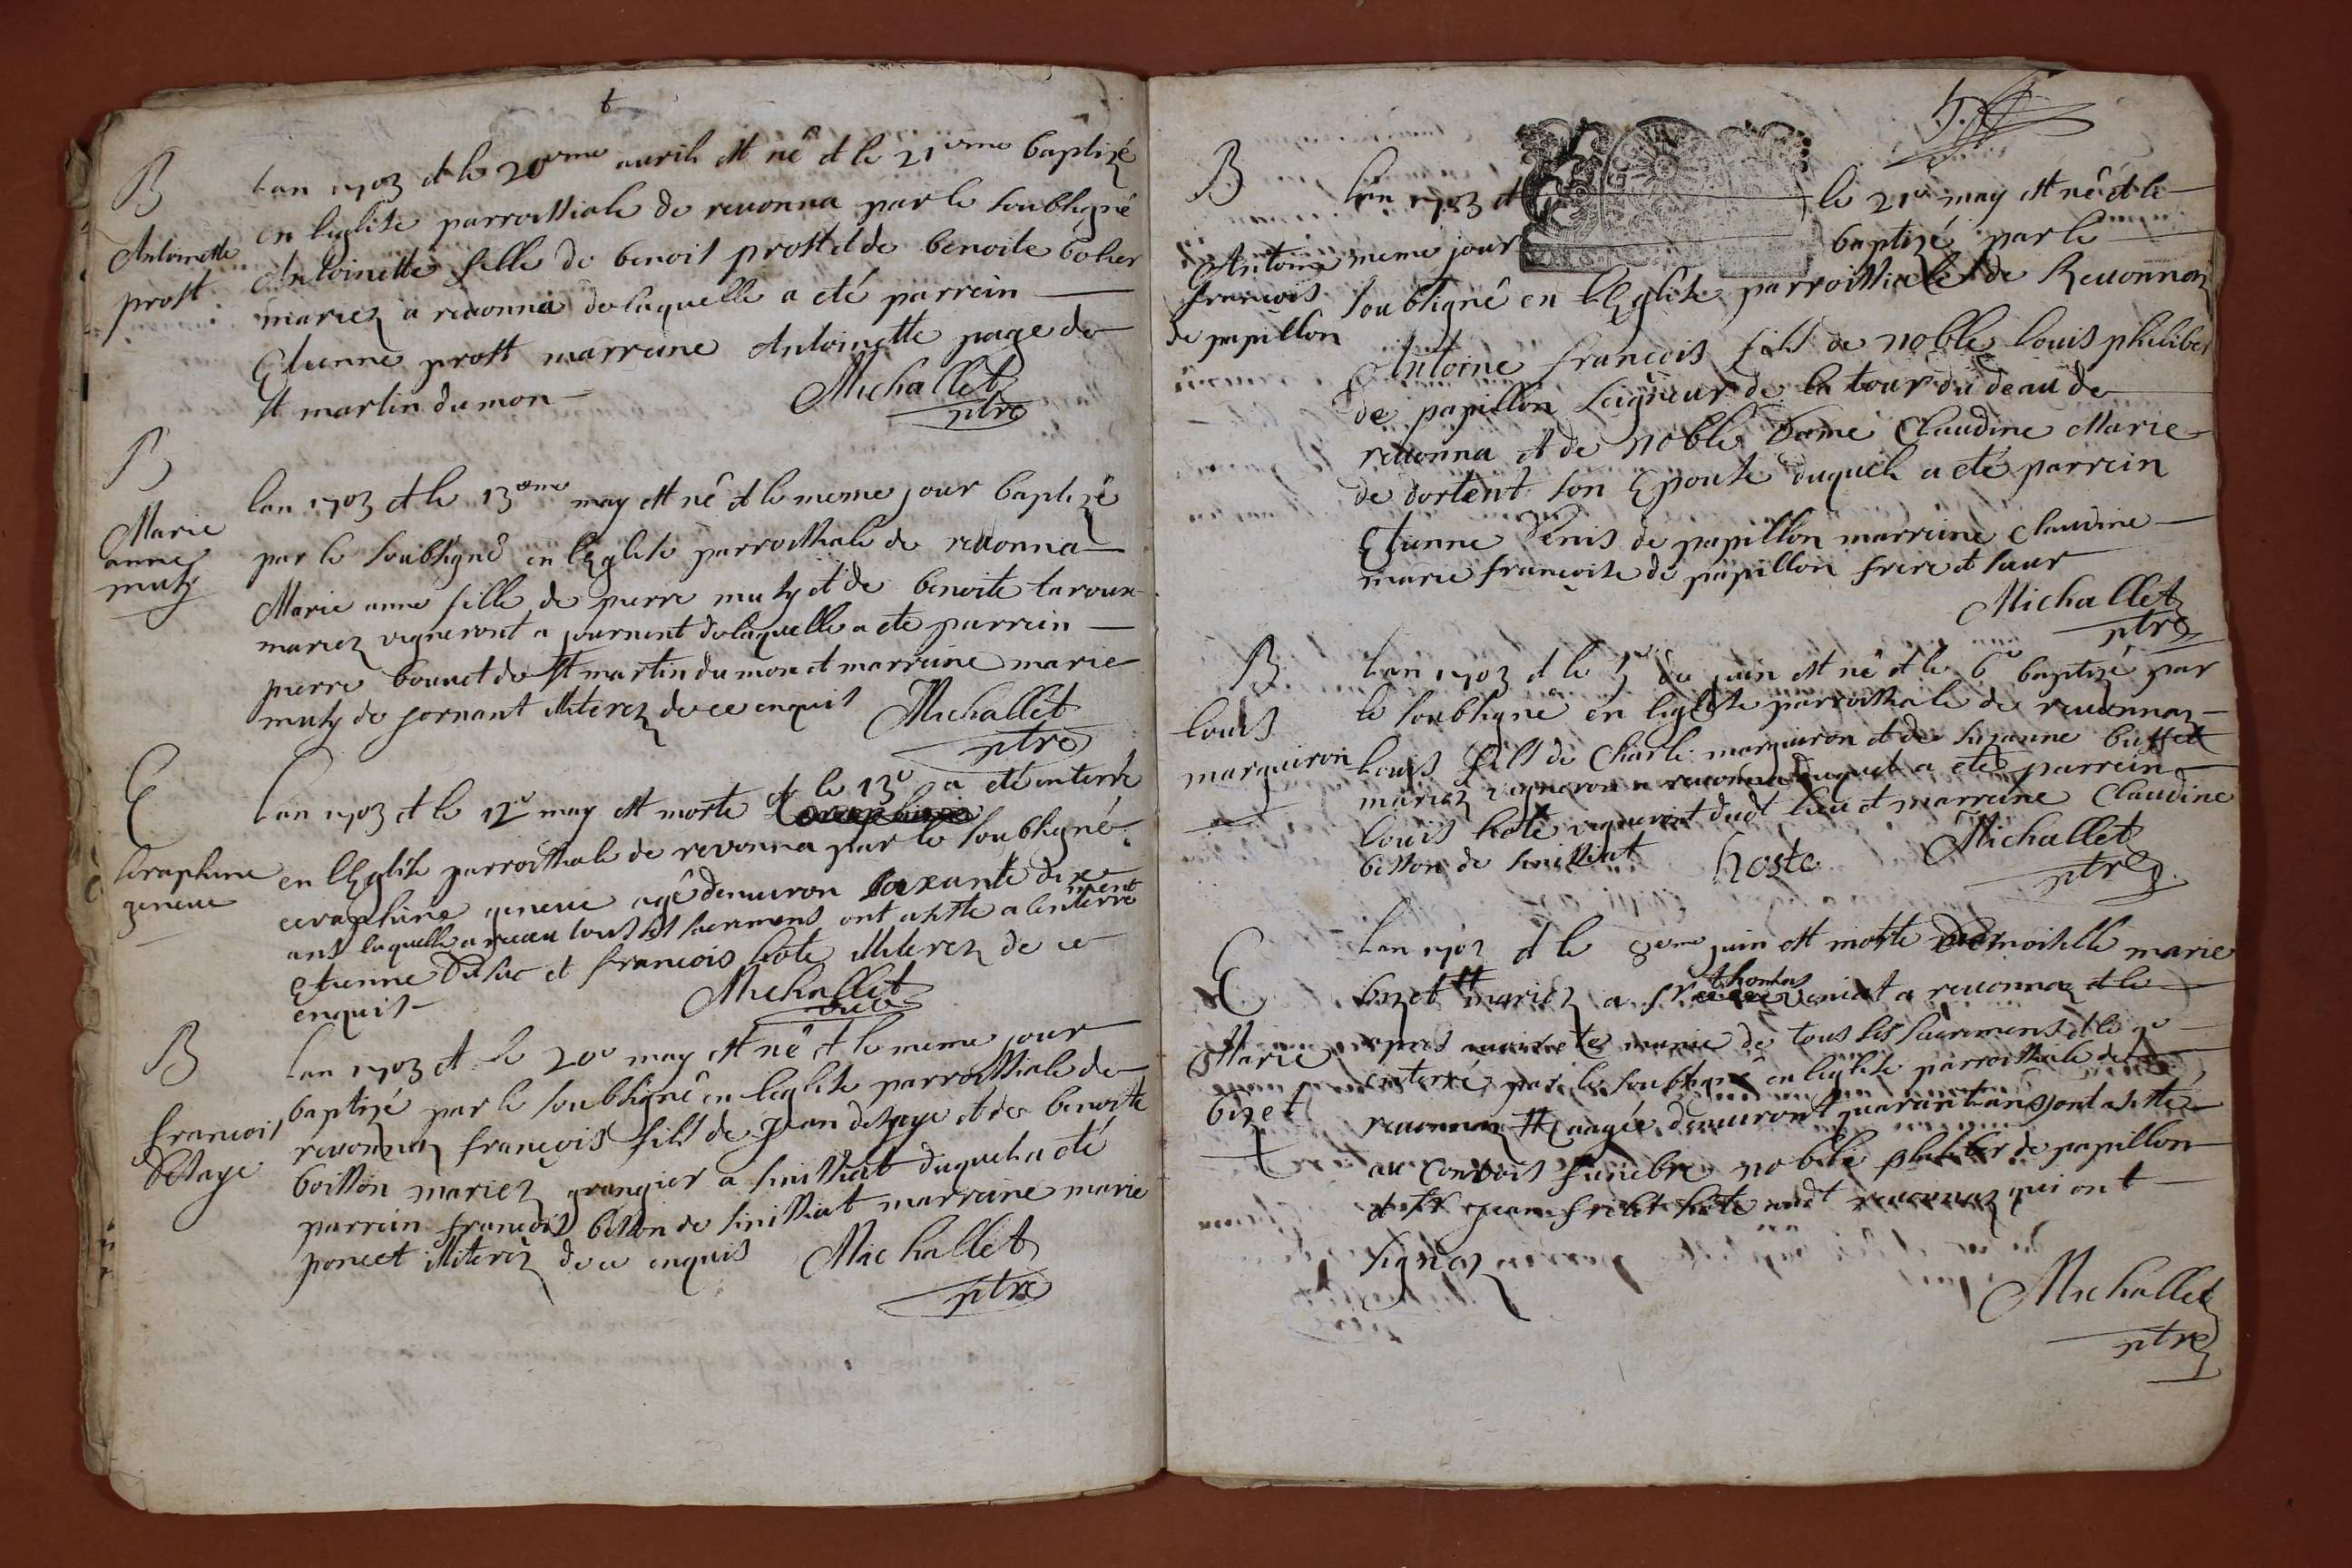 t
B
Antoinette
prost
Lan 1703 et le 20eme auril est nê et le 21eme baptizé
en leglise parroissiale de reuonna par le soubsigné
Antoinette fille de benoit prost et de benoite boher
mariez a reuonna de laquelle a eté parrein
Etienne prost marreine Antoinette page de
st martin du mon
Michallet
ptre
B
Marie
anne
muty
lan 1703 et le 13eme may est nê et le meme jour baptizê
par le soubsignê en lEglise parroissiale de reuonna
Marie anne fille de pierre muty et de benoite
mariez vigneront a journent de laquelle a ete parrein
pierre bouuet de st martin du mon et marreine marie
muty de jornant illiterez de ce enquis
Michallet
ptre
E
seraphine
geneue
Lan 1703 et le 12e may est morte et le 13e a eté enterré
en lEglise parroissiale de revonna par le soubsigné
ceraphine geneue agê denuiron soixante dix
ans laquelle a receu tous les sacremens ont assiste a lenterrement
Etienne et francois hote illiterez de ce
enquis
Michallet
B
francois
Lan 1703 et le 20e may est nê et le meme jour
baptizé par le soubsignê en leglise parroissiale de
reuonnaz françois fils de Jean et de benoite
boisson mariez grangier a sinissiat duquel a eté
parrein francois besson de sinissiat marreine marie
poncet illiterêz de ce enquis
Michallet
ptre
5.
B
Antoine
francois
de papillon
Lan 1703 et le 21e may est nê et le
meme jour baptizé par le
soubsignê en lEglise parroissiale de Reuonnaz
Antoine francois fils de noble louis philiber
de papillon seigneur de la tour du deau de
reuonna et de noble dame Claudine Marie
de dortent son Epouse duquel a eté parrein
Etienne denis de papillon marreine Claudine
marie francoise de papillon frere et sœur
Michallet
ptre
B
louis
marquiron
Lan 1703 et le 5e de juin est nê et le 6e baptizé par
le soubsignê en leglise parroissiale de reuonnaz
Louis fils de Charle marquiron et de suzanne buffet
mariez vigneron a reuonna duquel a eté parrein
louis hote vigneront dudt lieu et marreine Claudine
besson de sinissiat
hoste
Michallet
ptre
E
Marie
bizet
Lan 1703 et le 8eme juin est morte Demoiselle marie
bizet mariez a sr thomas a reuonnaz et le
apres auoir ete munie de tous les sacremens et le
enterré par le soubsignê en leglise parroissiale de
reuonnaz aagée denuiront quarant ans ont assiste
au Conuois funebre noble philiber de papillon
et sr jean hote audt reuonnaz qui ont
signez
Michallet
ptre